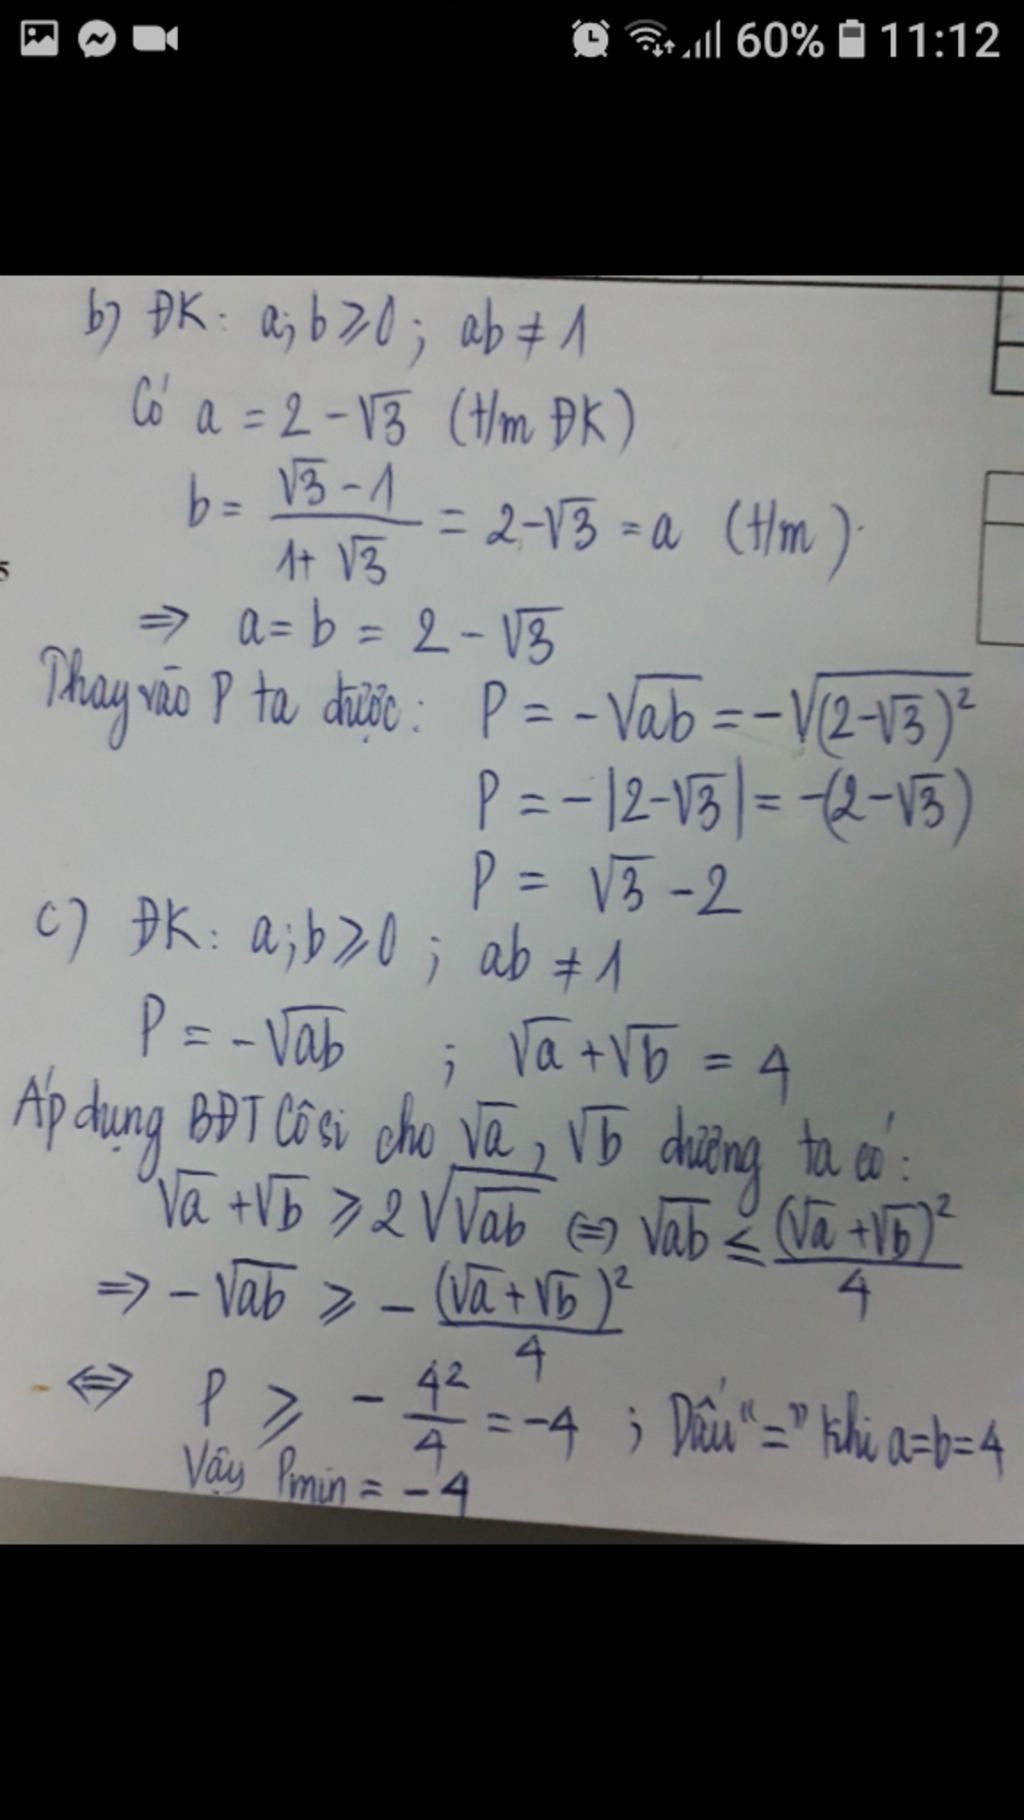 60% 11:12
b) ĐK: a; b ≥ 0; ab ≠ 1
Có a = 2 - √3 (t/m ĐK)
b = (√3 - 1)/(1 + √3) = 2 - √3 = a (t/m)
5
⇒ a = b = 2 - √3
Thay vào P ta được: P = -√ab = -√(2-√3)²
P = -|2-√3| = -(2-√3)
P = √3 - 2
c) ĐK: a; b ≥ 0; ab ≠ 1
P = -√ab ; √a + √b = 4
Áp dụng BĐT Côsi cho √a, √b dương ta có:
√a + √b ≥ 2√√ab ⇔ √ab ≤ (√a + √b)²/4
⇒ -√ab ≥ - (√a + √b)²/4
⇔ P ≥ - 4²/4 = -4 ; Dấu "=" khi a=b=4
Vậy Pmin = -4